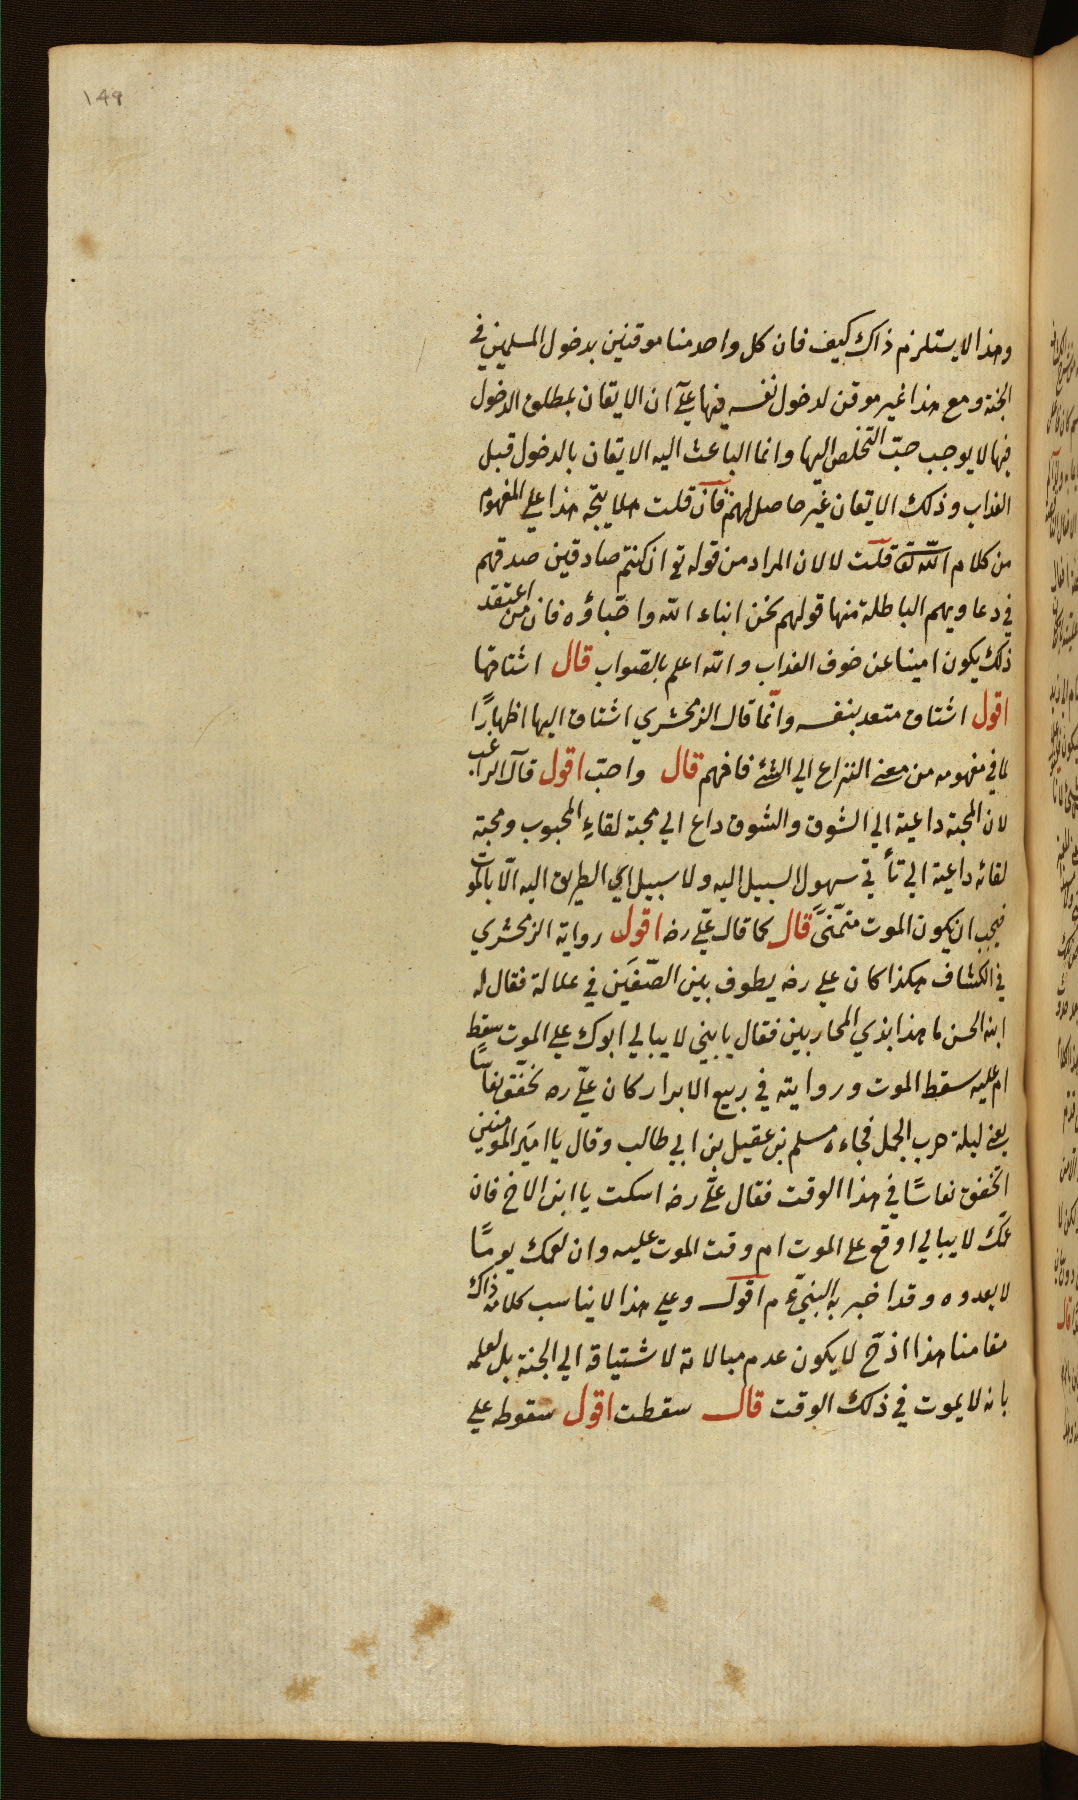 ١٤٩
وهذا لا يستلزم ذاك كيف فان كل واحد منا موقنين بدخول المسلمين في
الجنة ومع هذا غير موقن لدخول نفسه فيها على ان الايقان بمطلق الدخول
فيها لا يوجب حبّ التخلص اليها وانما الباعث اليه الايقان بالدخول قبل
العذاب وذلك الايقان غير حاصل لهم فان قلت هلا يتجه هذا على المفهوم
من كلام الله تعالى قلت لا لان المراد من قوله تع ان كنتم صادقين صدقهم
في دعاويهم الباطلة منها قولهم نحن ابناء الله واحبّاؤه فان من اعتقد
ذلك يكون امينا عن خوف العذاب والله اعلم بالصّواب قال اشتاقها
اقول اشتاق متعد بنفسه وانّما قال الزمخشري اشتاق اليها اظهارًا
لما في مفهومه من معنى النزاع الي الشئ فافهم قال واحبّ اقول قال الراغب
لان المحبة داعية الي الشوق والشوق داع الي محبة لقاءِ المحبوب ومحبة
لقائه داعية الي تأتي سهول السبيل اليه ولا سبيل الي الطريق اليه الّا بالموت
فيجب ان يكون الموت متمنّىً قال كما قال عليّ رضه اقول رواية الزمخشري
في الكشاف هكذا كان علي رضه يطوف بين الصّفَين في غلالة فقال له
ابنه الحسن ما هذا بذي المحاربين فقال يا بني لا يبالي ابوك علي الموت سقط
ام عليه سقط الموت وروايته في ربيع الابرار كان عليّ رضه يخفّق نعاسًا
يعني ليلة حرب الجمل فجاءه مسلم بن عقيل بن ابي طالب وقال يا امير المؤمنين
اتخفق نعاسًا في هذا الوقت فقال عليّ رضه اسكت يا ابن الاخ فان
عمّك لا يبالي اوقع على الموت ام وقت الموت عليه وان لعمك يومًا
لا يعدوه وقد اخبر به النبيّ ءم اقول وعلي هذا لا يناسب كلامه ذاك
مقامنا هذا اذ ح لا يكون عدم مبالاته لاشتياقه الي الجنة بل لعلمه
بانه لا يموت في ذلك الوقت قال سقطت اقول سقوطه علي